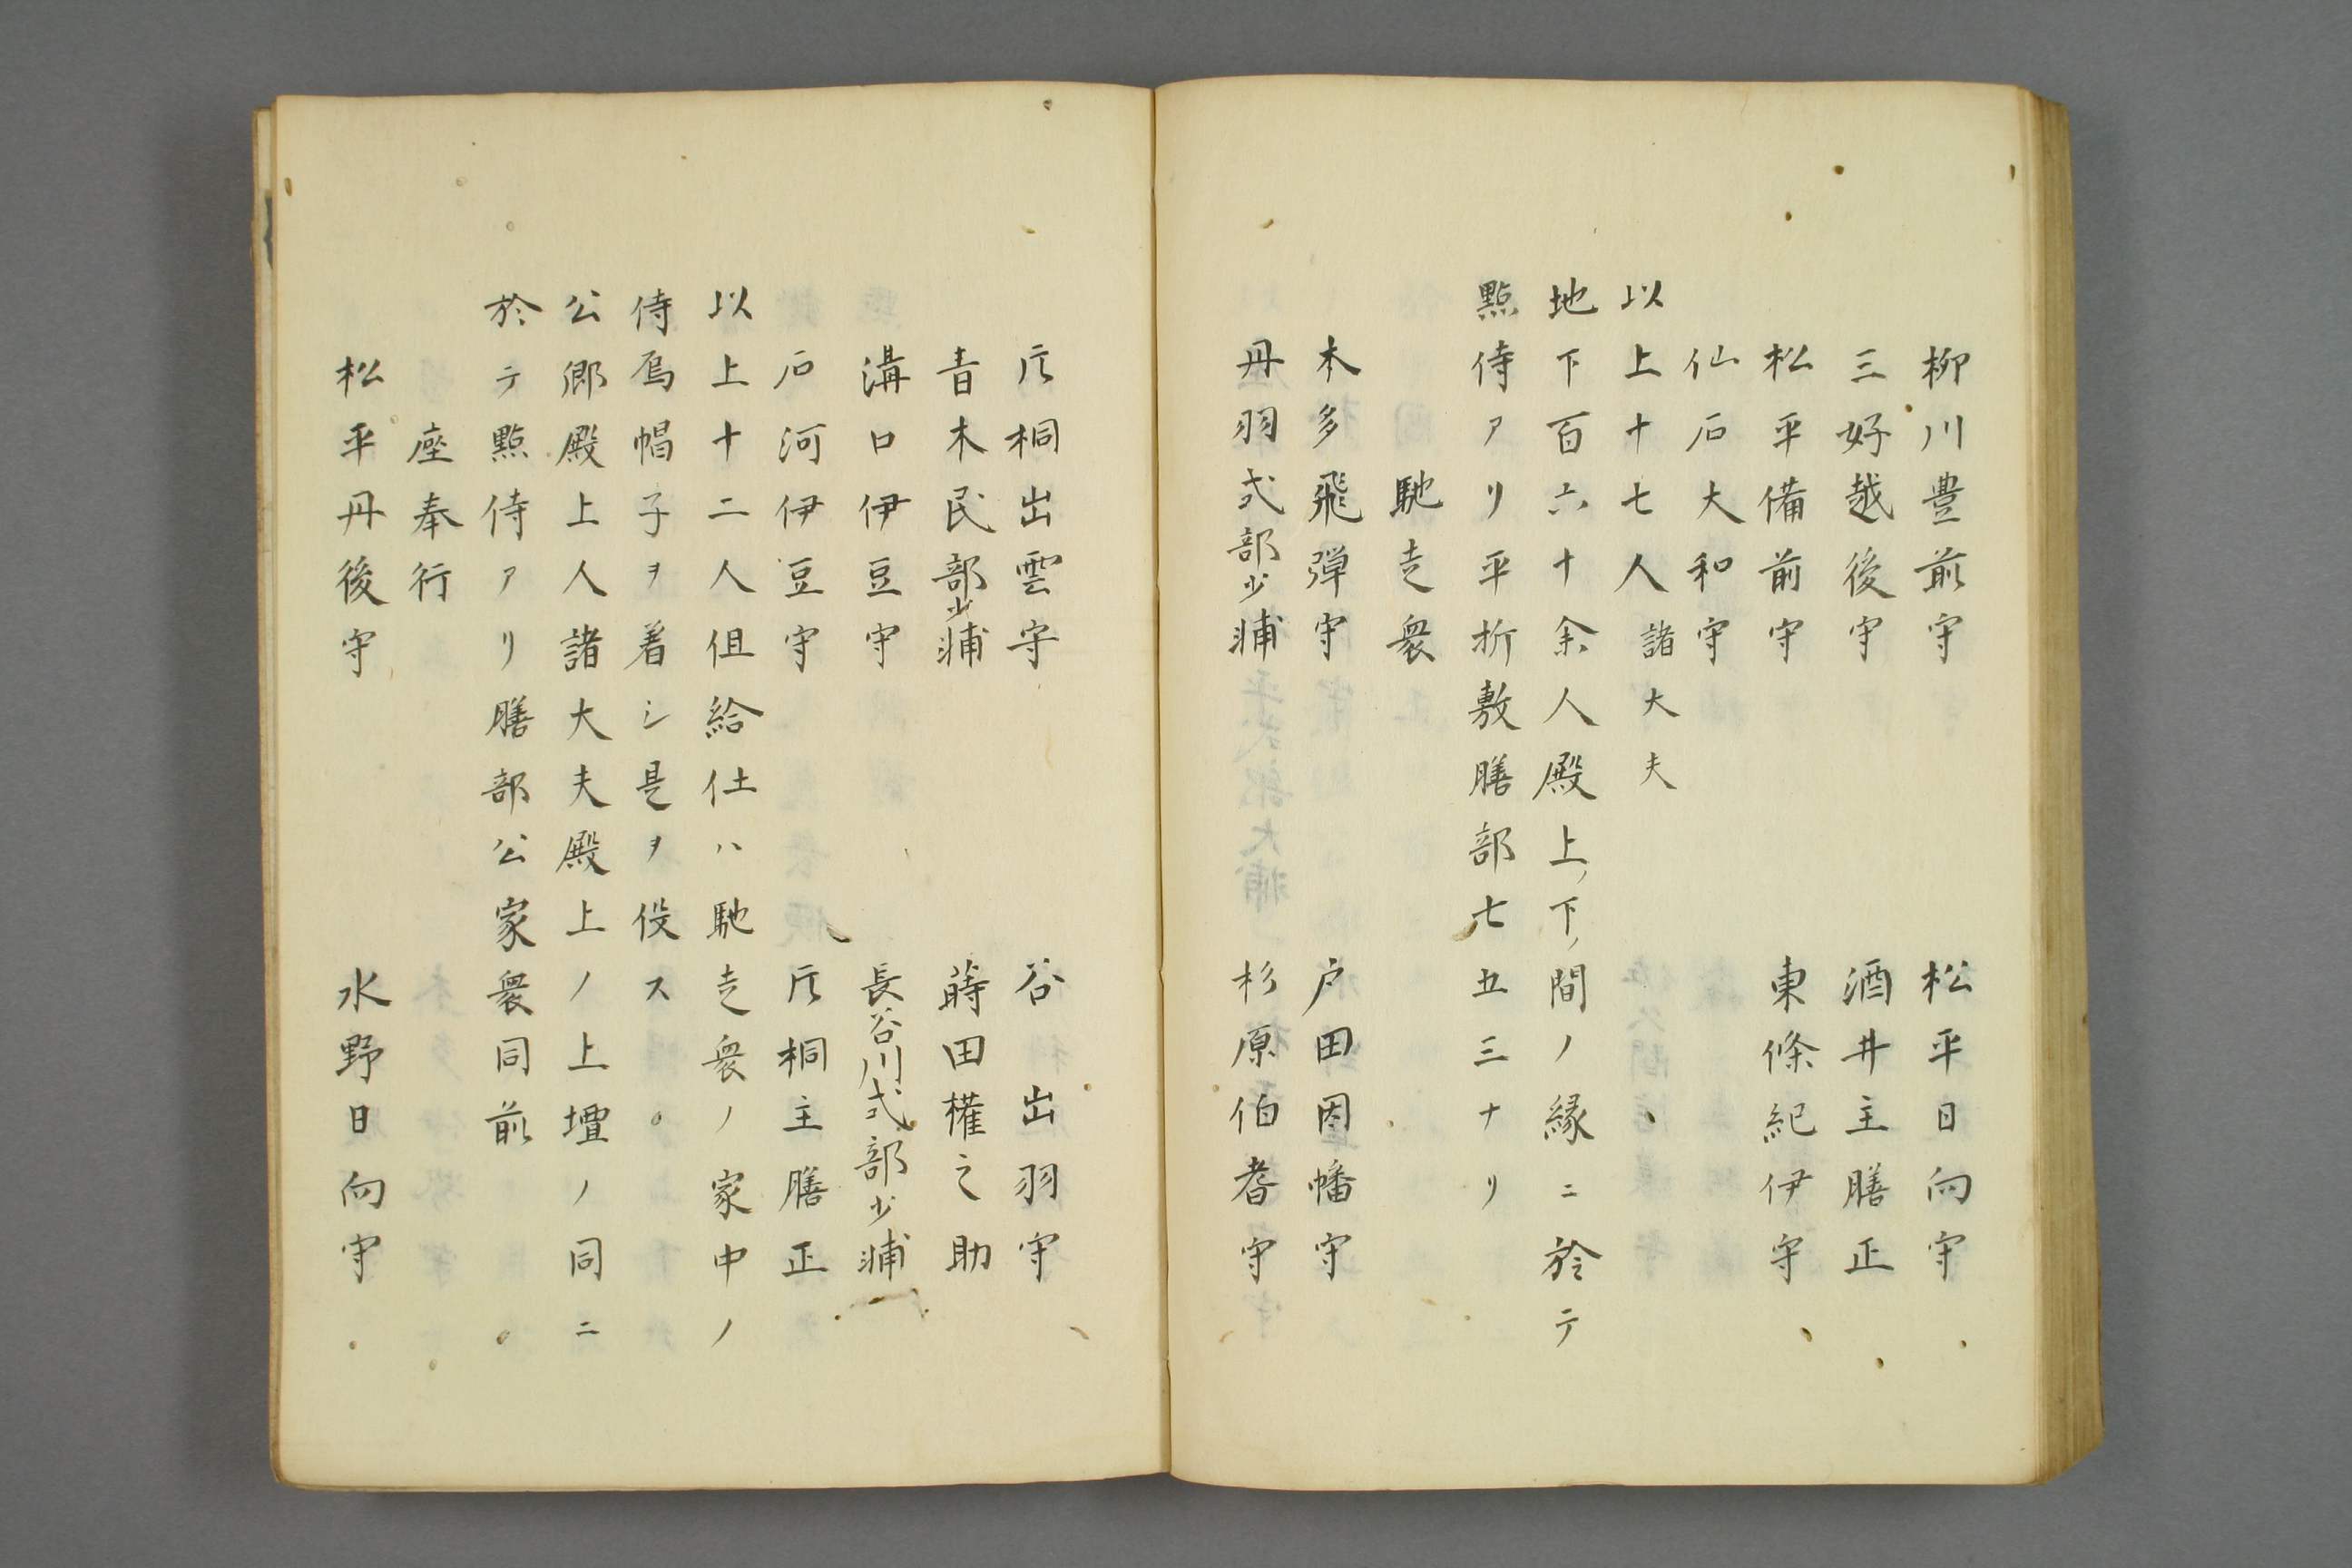 柳川豊前守　松平日向守
三好越後守　酒井主膳正
松平備前守　東條紀伊守
仙石大和守
以上十七人諸大夫
地下百六十余人殿上下間ノ縁ニ於テ
點侍アリ平折敷膳部七五三ナリ
馳走衆
本多飛弾守　戸田因幡守
丹羽式部少輔　杉原伯耆守
片桐出雲守　谷出羽守
青木民部少輔　蒔田権之助
溝口伊豆守　長谷川式部少輔
石河伊豆守　片桐主膳正
以上十二人但給仕ハ馳走衆ノ家中ノ
侍烏帽子ヲ着シ是ヲ役ス
公卿殿上人諸大夫殿上ノ上壇ノ同ニ
於テ點侍アリ膳部公家衆同前
座奉行
松平丹後守　水野日向守